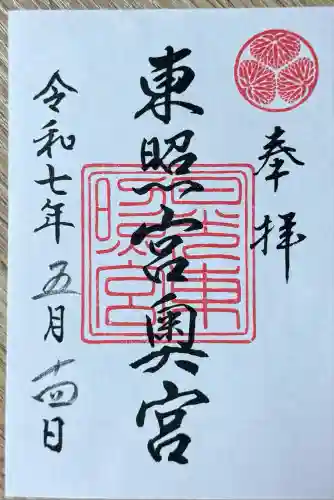 奉拝
東照宮奥宮
令和七年五月十四日